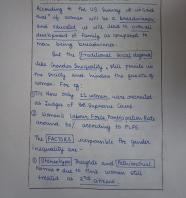 According to the US Survey of
that" if women will be a breadwinner
and educated, it will lead to overall
development of family as compared to
man being breadwinner.
But the traditional social dogmas
like Gender Inequality, still persists in
the society and hinders the growth of
women. For eg:
① Till now only 11 women were recruited
as Judges of the Supreme Court.
② Women's Labour Force Participation Rate
around according to PLFS.
The FACTORS responsible for gender
inequality are -
① Stereotype Thoughts and Patriarchal
Norms • due to this women still
treated as 2nd citizens.